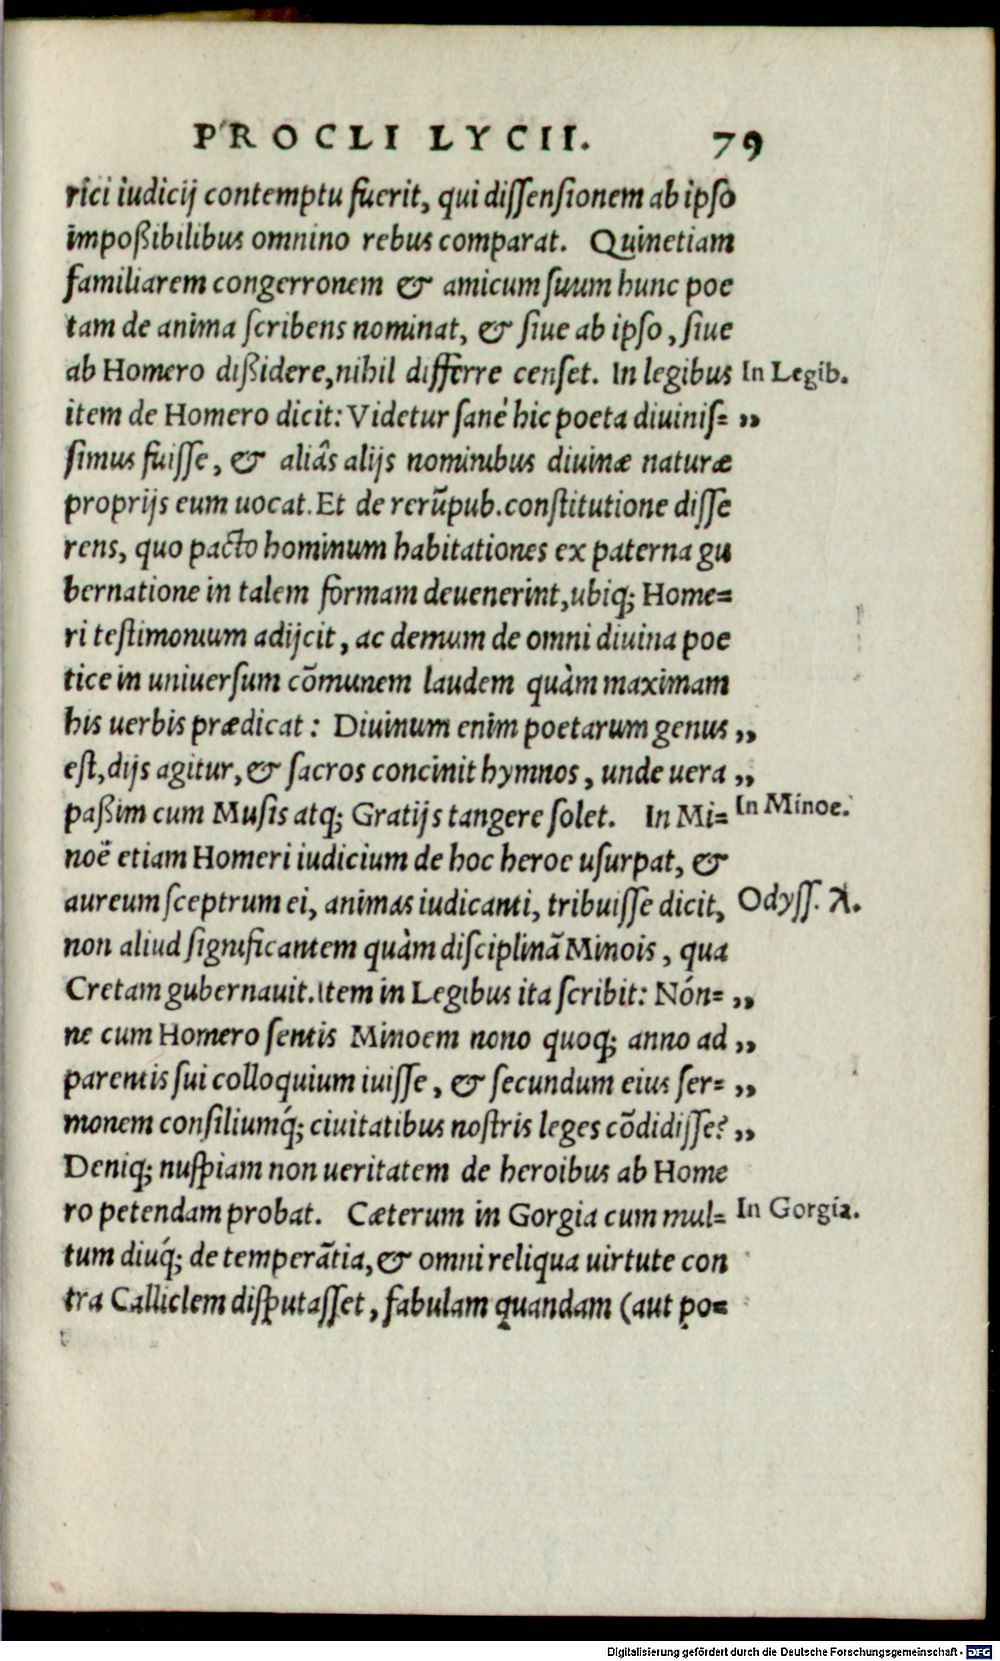 PROCLI LYCII. 79
rici iudicij contemptu fuerit, qui dissensionem ab ipso
impoßibilibus omnino rebus comparat. Quinetiam
familiarem congerronem & amicum suum hunc poe
tam de anima scribens nominat, & siue ab ipso, siue
ab Homero dißidere, nihil differre censet. In legibus In Legib.
item de Homero dicit: Videtur sanè hic poeta diuinis= „
simus fuisse, & aliâs alijs nominibus diuinæ naturæ
proprijs eum uocat. Et de rerũpub. constitutione disse
rens, quo pacto hominum habitationes ex paterna gu
bernatione in talem formam deuenerint, ubiq; Home=
ri testimonium adijcit, ac demum de omni diuina poe
tice in uniuersum cõmunem laudem quàm maximam
his uerbis prædicat: Diuinum enim poetarum genus „
est, dijs agitur, & sacros concinit hymnos, unde uera „
paßim cum Musis atq; Gratijs tangere solet. In Mi= In Minoe.
noë etiam Homeri iudicium de hoc heroe usurpat, &
aureum sceptrum ei, animas iudicanti, tribuisse dicit, Odyss. λ.
non aliud significantem quàm disciplinã Minois, qua
Cretam gubernauit. Item in Legibus ita scribit: Nón= „
ne cum Homero sentis Minoem nono quoq; anno ad „
parentis sui colloquium iuisse, & secundum eius ser= „
monem consiliumq́; ciuitatibus nostris leges cõdidisse? „
Deniq; nuspiam non ueritatem de heroibus ab Home
ro petendam probat. Cæterum in Gorgia cum mul= In Gorgia.
tum diuq́; de temperãtia, & omni reliqua uirtute con
tra Calliclem disputasset, fabulam quandam (aut po=
Digitalisierung gefördert durch die Deutsche Forschungsgemeinschaft - DFG